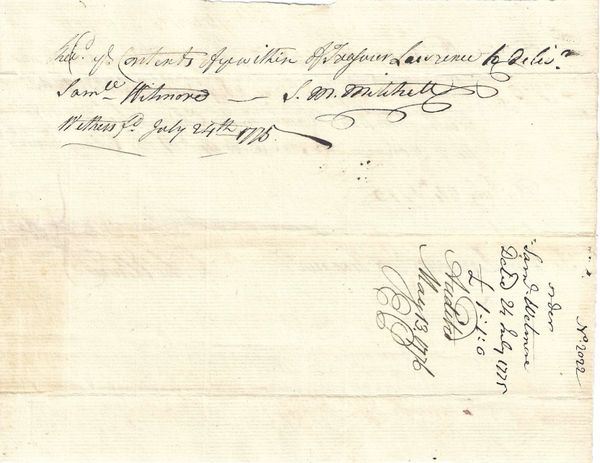 Recd ye Contents of ye within of Treasurer Lawrence to deliver
Samll Wilmore — S. M. Mitchell
Wethersfd July 24th 1775
No 2022
order
Samll Wetmore
Dated 24 July 1775
£ 1:1:0
Audited
May 13, 1776